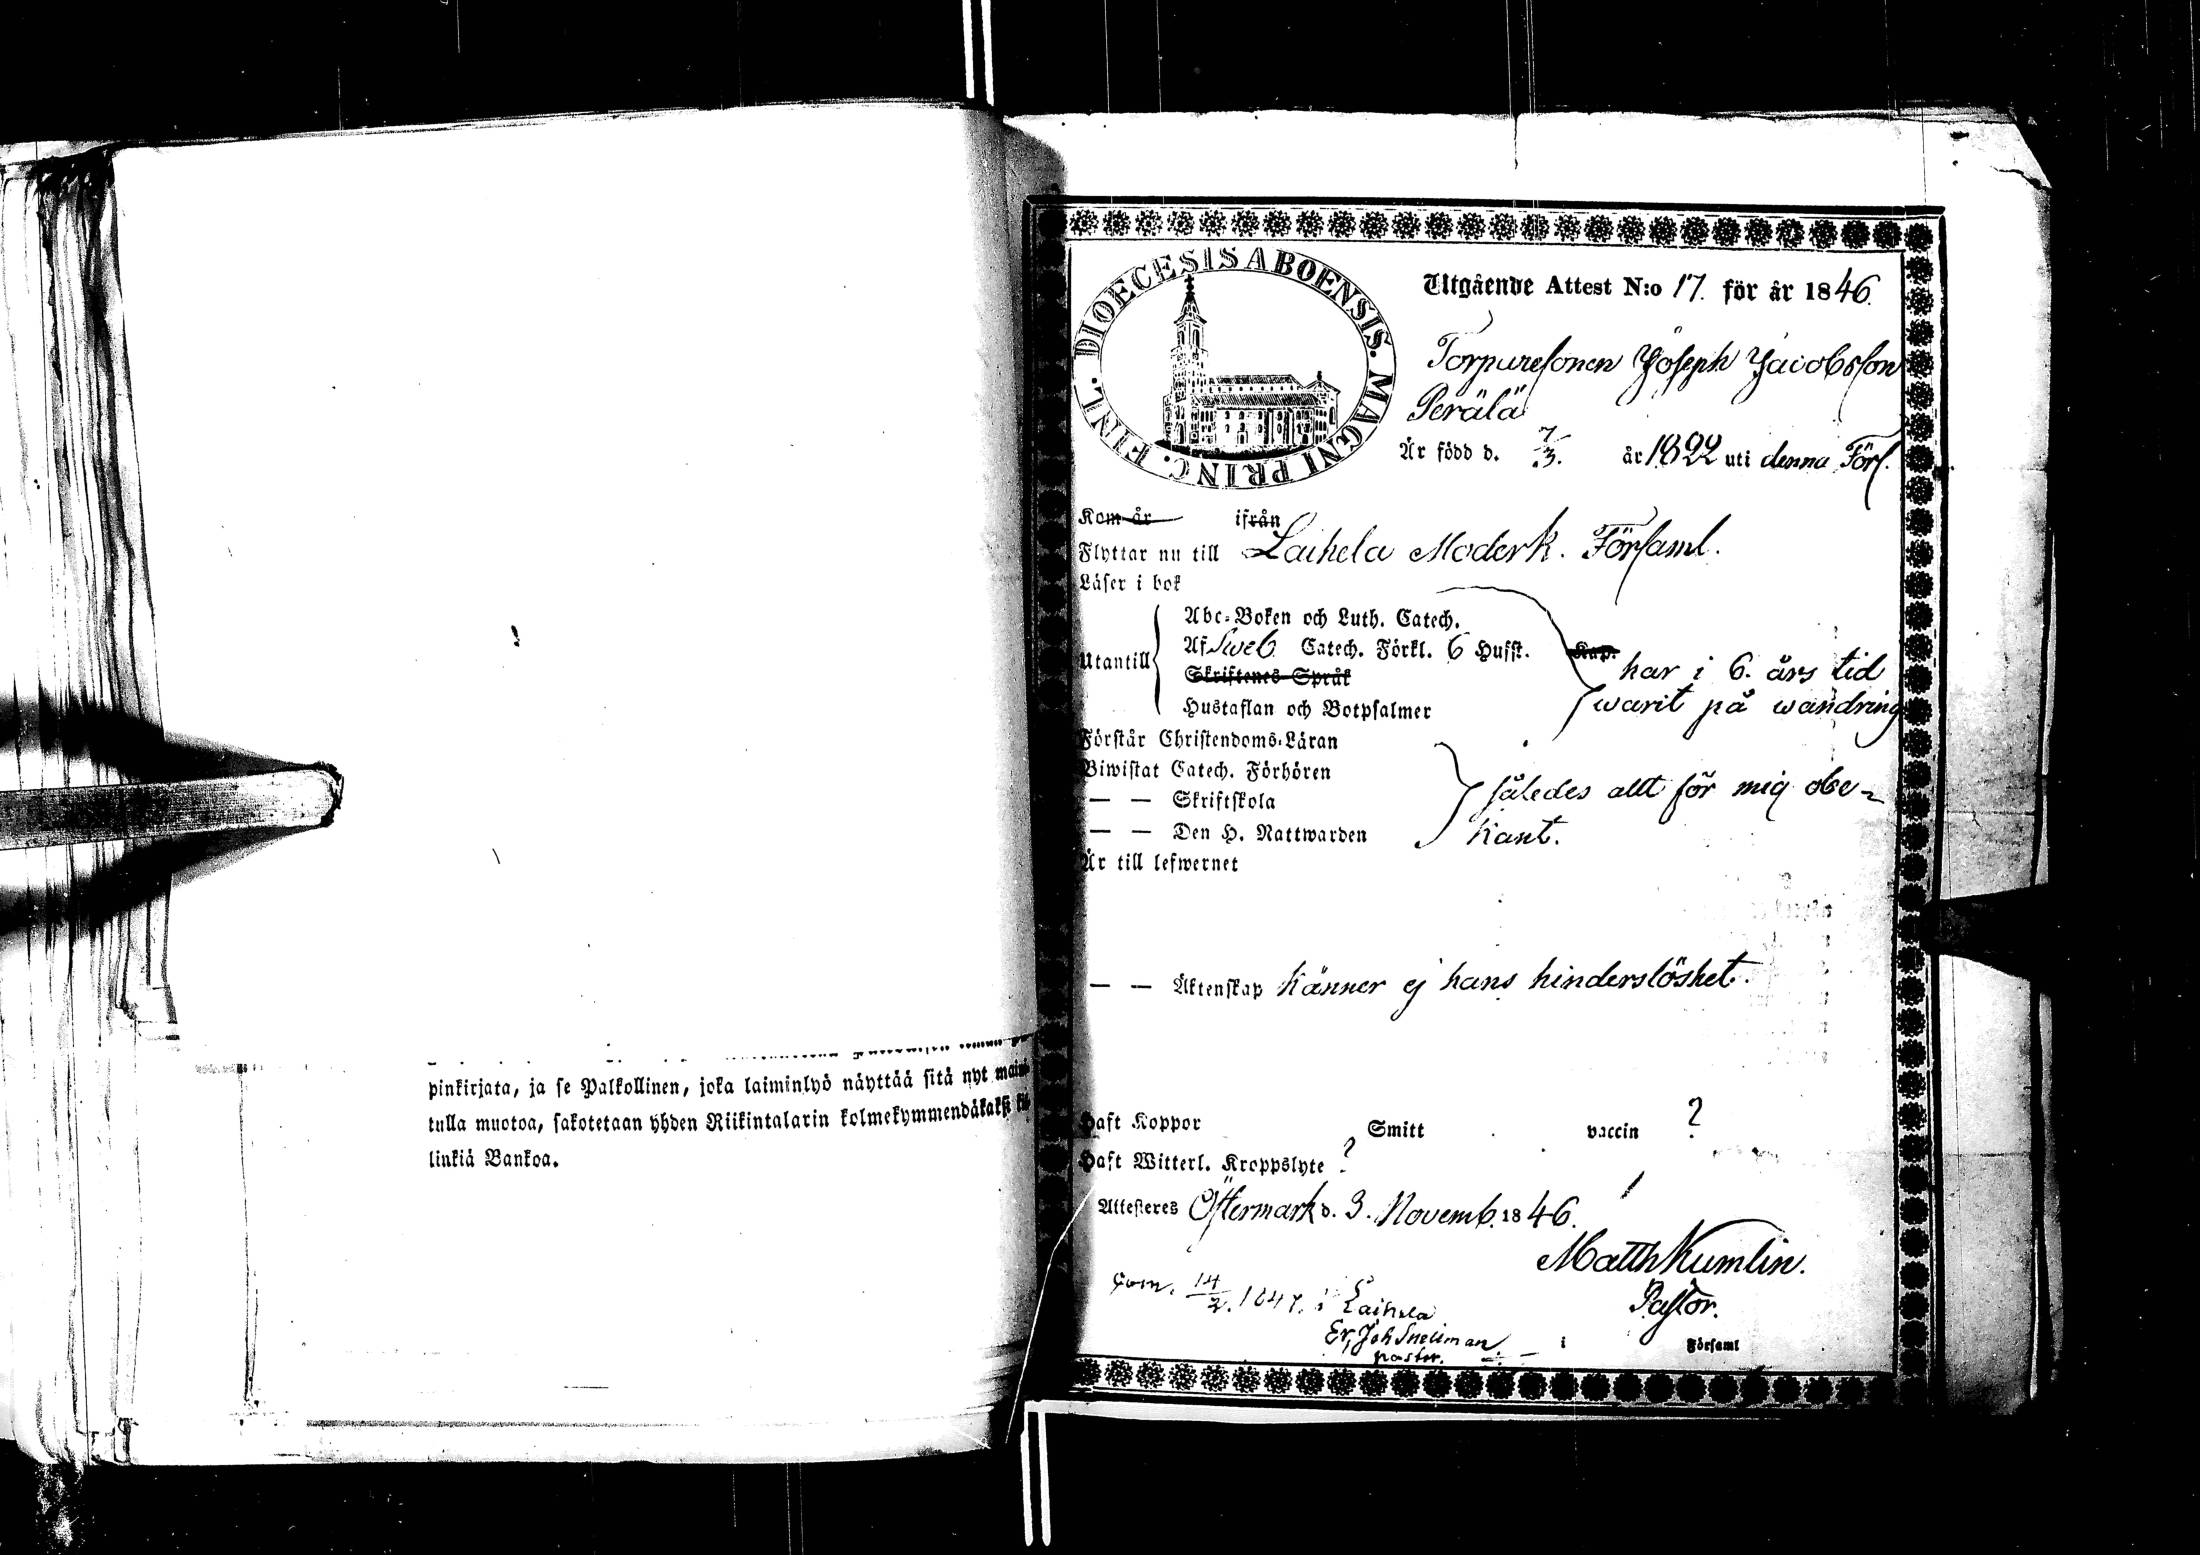 pinkirjata, ja se Palkollinen, joka laiminlyö näyttää sitä nyt
tulla muotoa, sakotetaan yhden Riikintalarin kolmekymmendäkaksi
linkiä Bankoa.
DIOECESIS ABOENSIS. MAGNI PRINC. FINL.
Utgående Attest N:o 17. för år 1846.
Torparesonen Joseph Jacobsson
Perälä
Är född d. 7/3. år 1822 uti denna Förs.
Kom år ifrån
Flyttar nu till Laihela Moderk. Församl.
Läser i bok
Abc-Boken och Luth. Catech.
Utantill
Af Sweb. Catech. Förkl. 6 Hufst. Kap.
Skriftenes Språk
Hustaflan och Botpsalmer
har i 6. års tid
warit på wandring
Förstår Christendoms-Läran
Biwistat Catech. Förhören
— — Skriftskola
— — Den H. Nattwarden
således allt för mig obe-
kant.
Är till lefwernet
— — Äktenskap känner ej hans hinderslöshet.
Haft Koppor Smitt vaccin ?
Haft Witterl. Kroppslyte ?
Attesteres Östermark d. 3. Novemb. 1846.
Matth Kumlin.
Pastor.
14/2. 1847. i Laihela
Er, Joh Snellman
pastor.
i Församl